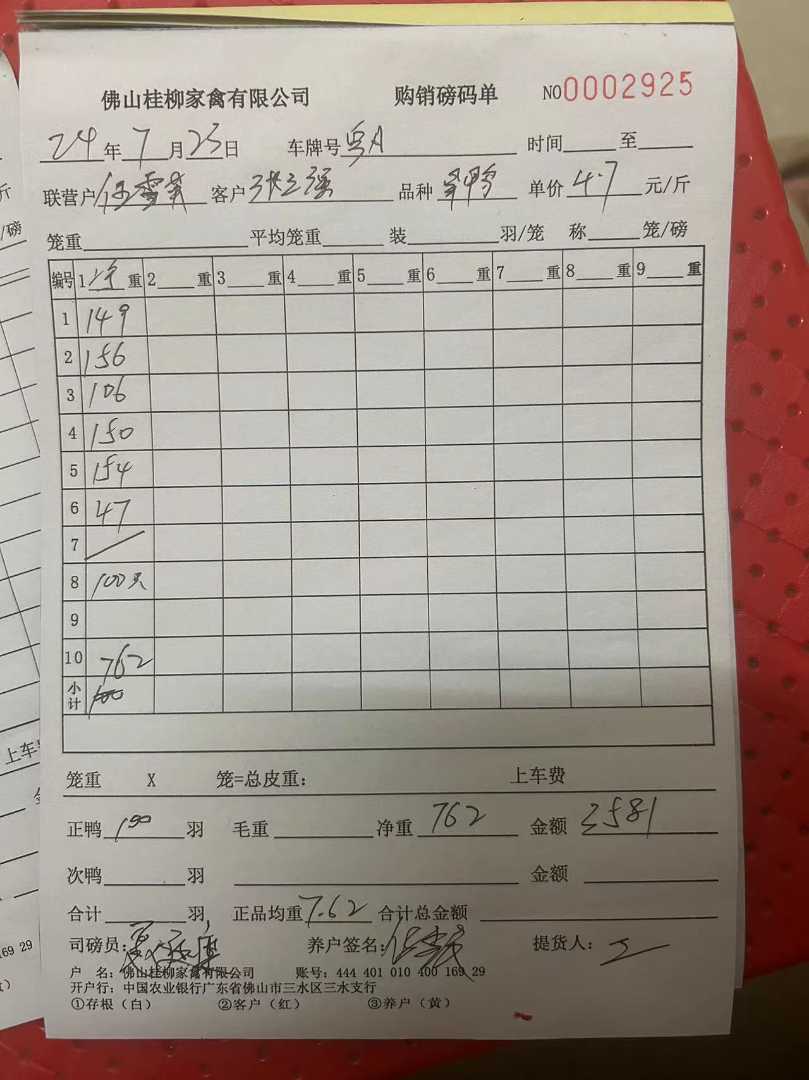 佛山桂柳家禽有限公司 购销磅码单 NO0002925
24年7月23日 车牌号粤A 时间 至
联营户 客户张立强 品种 单价4.7元/斤
笼重 平均笼重 装 羽/笼 称 笼/磅
编号 1 净 重 2 重 3 重 4 重 5 重 6 重 7 重 8 重 9 重
1 149
2 156
3 106
4 150
5 154
6 47
7
8 100只
9
10 762
小计
笼重 X 笼=总皮重: 上车费
正鸭100羽 毛重 净重762 金额3581
次鸭 羽 金额
合计 羽, 正品均重7.62 合计总金额
司磅员: 养户签名: 提货人:
户 名:佛山桂柳家禽有限公司 账号:444 401 010 400 169 29
开户行:中国农业银行广东省佛山市三水区三水支行
①存根(白) ②客户(红) ③养户(黄)
斤
/磅
上车费
169 29